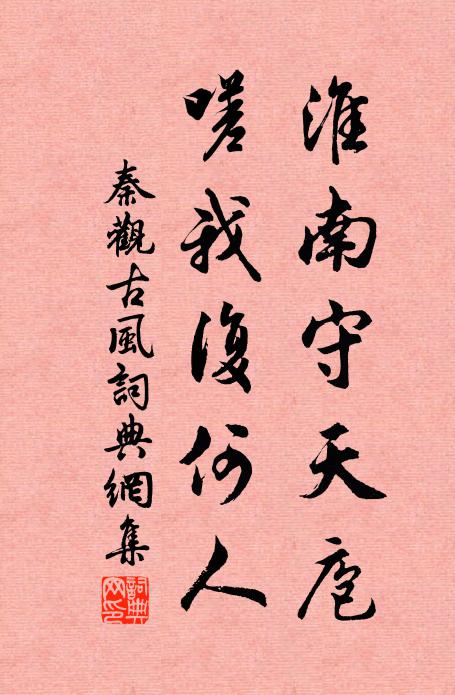 淮南守天庖
嗟我復何人
秦觀古風詞典網集
詞典网印